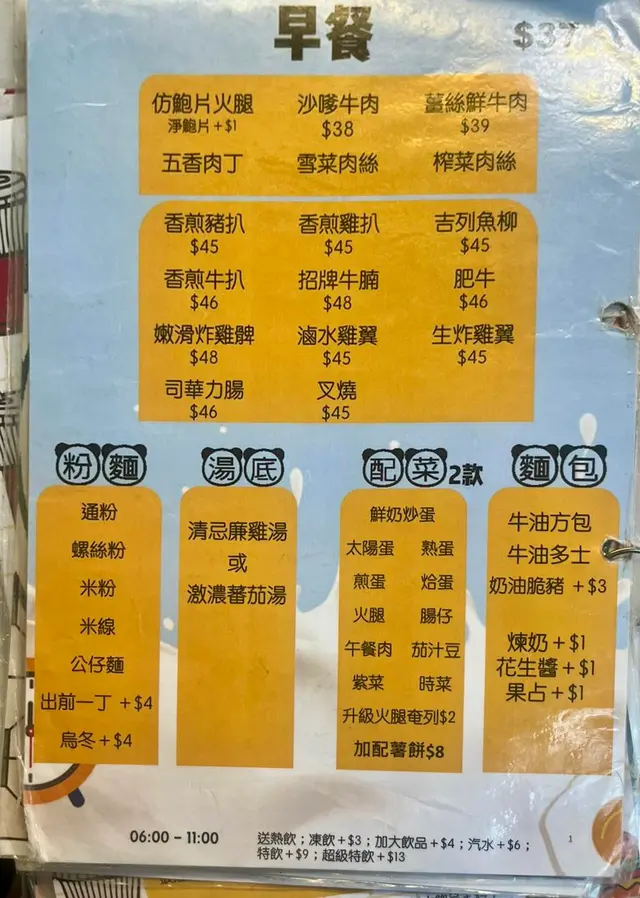 早餐 $37
仿鮑片火腿 沙嗲牛肉 薑絲鮮牛肉
淨鮑片+$1 $38 $39
五香肉丁 雪菜肉絲 榨菜肉絲
香煎豬扒 香煎雞扒 吉列魚柳
$45 $45 $45
香煎牛扒 招牌牛腩 肥牛
$46 $48 $46
嫩滑炸雞髀 滷水雞翼 生炸雞翼
$48 $45 $45
司華力腸 叉燒
$46 $45
粉麵
通粉
螺絲粉
米粉
米線
公仔麵
出前一丁 +$4
烏冬+$4
湯底
清忌廉雞湯
或
激濃蕃茄湯
配菜2款
鮮奶炒蛋
太陽蛋 熟蛋
煎蛋 烚蛋
火腿 腸仔
午餐肉 茄汁豆
紫菜 時菜
升級火腿奄列$2
加配薯餅$8
麵包
牛油方包
牛油多士
奶油脆豬 +$3
煉奶+$1
花生醬+$1
果占+$1
06:00 - 11:00
送熱飲;凍飲+$3;加大飲品+$4;汽水+$6;
特飲+$9;超級特飲+$13
1